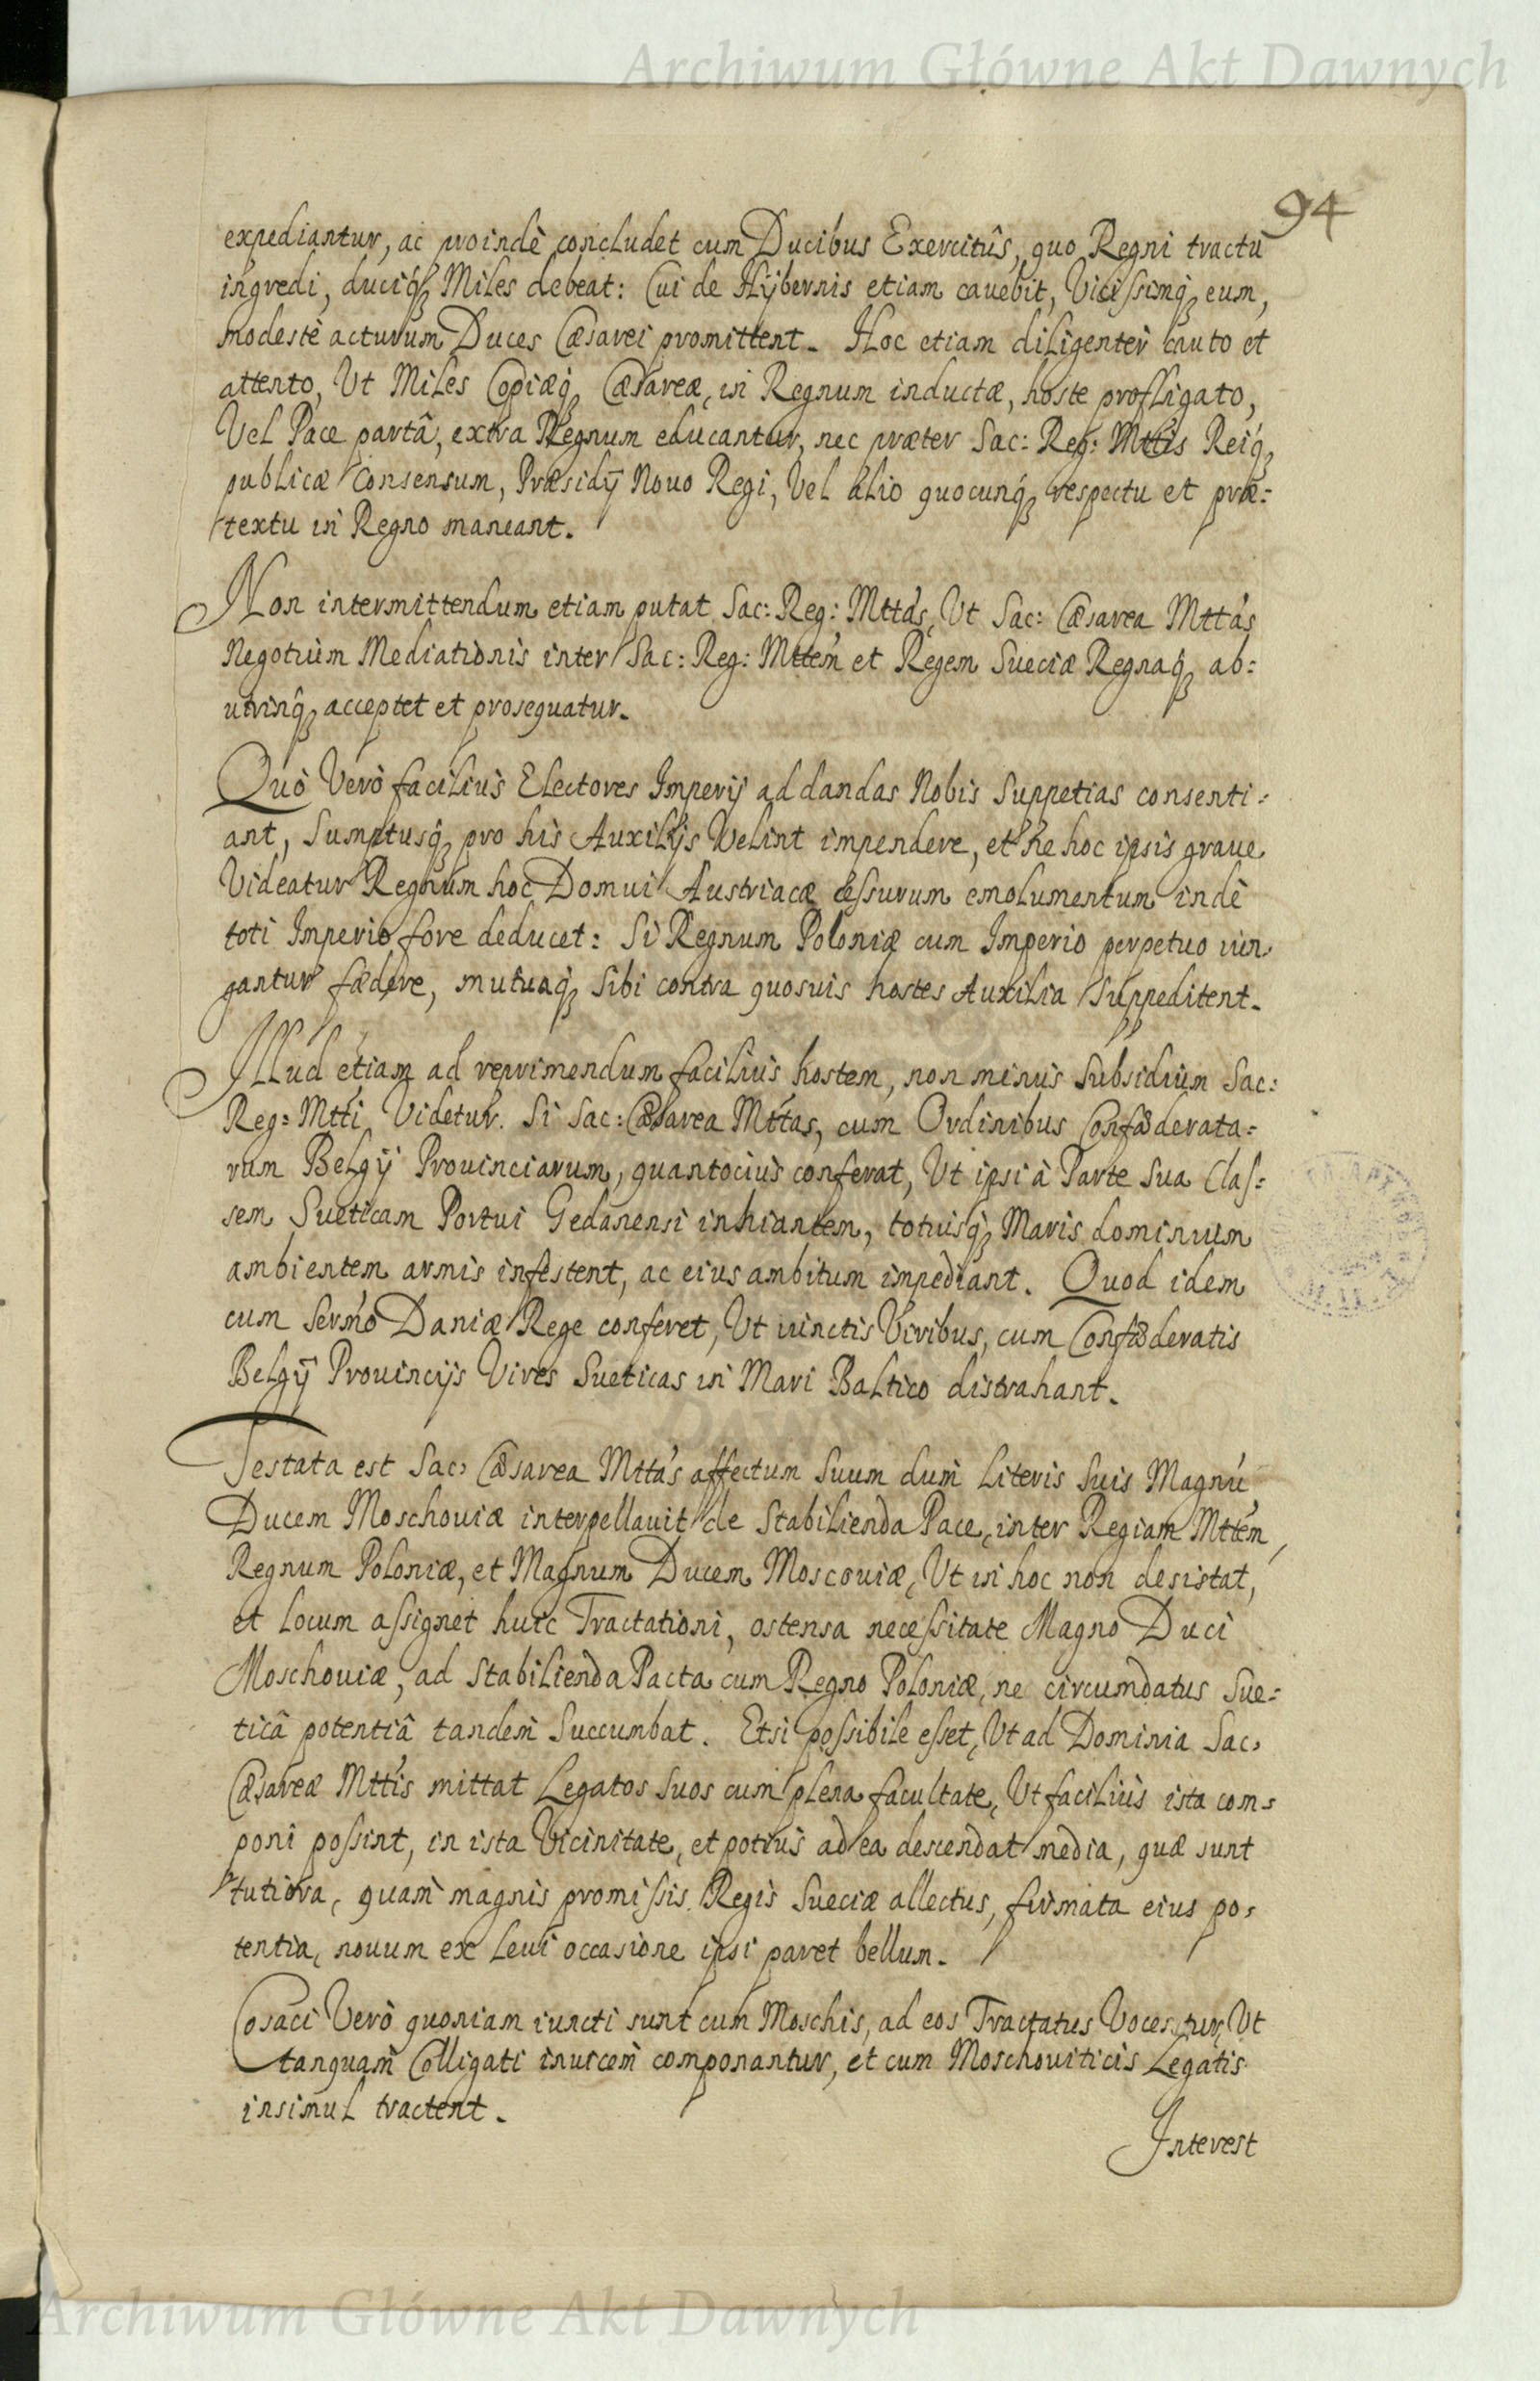 Archiwum Główne Akt Dawnych
94
expediantur, ac proindè concludet cum Ducibus Exercitûs, quo Regni tractu
ingredi, duciq́ꝫ Miles debeat: Cui de Hÿbernis etiam cauebit, Vicissimq́ꝫ eum,
modestè acturum Duces Cæsarei promittent. Hoc etiam diligenter cauto et
attento, Vt Miles Copiæq́ꝫ Cæsareæ, in Regnum inductæ, hoste profligato,
Vel Pace partâ, extra Regnum educantur, nec præter Sac: Reg: Mttis Reiq́ꝫ
publicæ Consensum, Præsidÿ Nouo Regi, Vel alio quocunq́ꝫ respectu et præ:
textu in Regno maneant.
Non intermittendum etiam putat Sac: Reg: Mttas, Vt Sac: Cæsarea Mttas
Negotium Mediationis inter Sac: Reg: Mttem et Regem Sueciæ Regnaq́ꝫ ab:
utrinq́ꝫ acceptet et prosequatur.
Quò Verò faciliùs Electores Imperij ad dandas Nobis Suppetias consenti:
ant, Sumptusq́ꝫ pro his Auxilijs Velint impendere, et ne hoc ipsis graue
Videatur Regnum hoc Domui Austriacæ cessurum emolumentum indè
toti Imperio fore deducet: Si Regnum Poloniæ cum Imperio perpetuo iun
gantur fædere, mutuaq́ꝫ Sibi contra quosuis hostes Auxilia Suppeditent.
Illud etiam ad reprimendum faciliùs hostem, non minùs Subsidium Sac:
Reg: Mtti Videtur. Si Sac: Cæsarea Mttas, cum Ordinibus Confæderata:
rum Belgÿ Prouinciarum, quantociùs conferat, Vt ipsi à Parte Sua Clas:
sem Sueticam Portui Gedanensi inhiantem, totiusq́ꝫ Maris dominium
ambientem armis infestent, ac eius ambitum impediant. Quod idem
cum Sermo Daniæ Rege conferet, Vt iunctis Viribus, cum Confæderatis
Belgÿ Prouincijs Vires Sueticas in Mari Baltico distrahant.
Testata est Sac: Cæsarea Mttas affectum Suum dum Literis Suis Magnū
Ducem Moschouiæ interpellauit de Stabilienda Pace, inter Regiam Mttem,
Regnum Poloniæ, et Magnum Ducem Moscouiæ, Vt in hoc non desistat,
et Locum assignet huic Tractationi, ostensa necessitate Magno Duci
Moschouiæ, ad Stabilienda Pacta cum Regno Poloniæ, ne circumdatus Sue:
ticâ potentiâ tandem Succumbat. Etsi possibile esset, Vt ad Dominia Sac:
Cæsareæ Mttis mittat Legatos Suos cum plena facultate, Vt faciliùs ista com:
poni possint, in ista Vicinitate, et potiùs ad ea descendat media, quæ sunt
tutiora, quam magnis promissis Regis Sueciæ allectus, firmata eius po:
tentia, nouum ex Leui occasione ipsi paret bellum.
Cosaci Verò quoniam iuncti sunt cum Moschis, ad eos Tractatus Vocentur, Vt
tanquam Colligati inuicem componantur, et cum Moschouiticis Legatis
insimul tractent.
Interest
Archiwum Główne Akt Dawnych